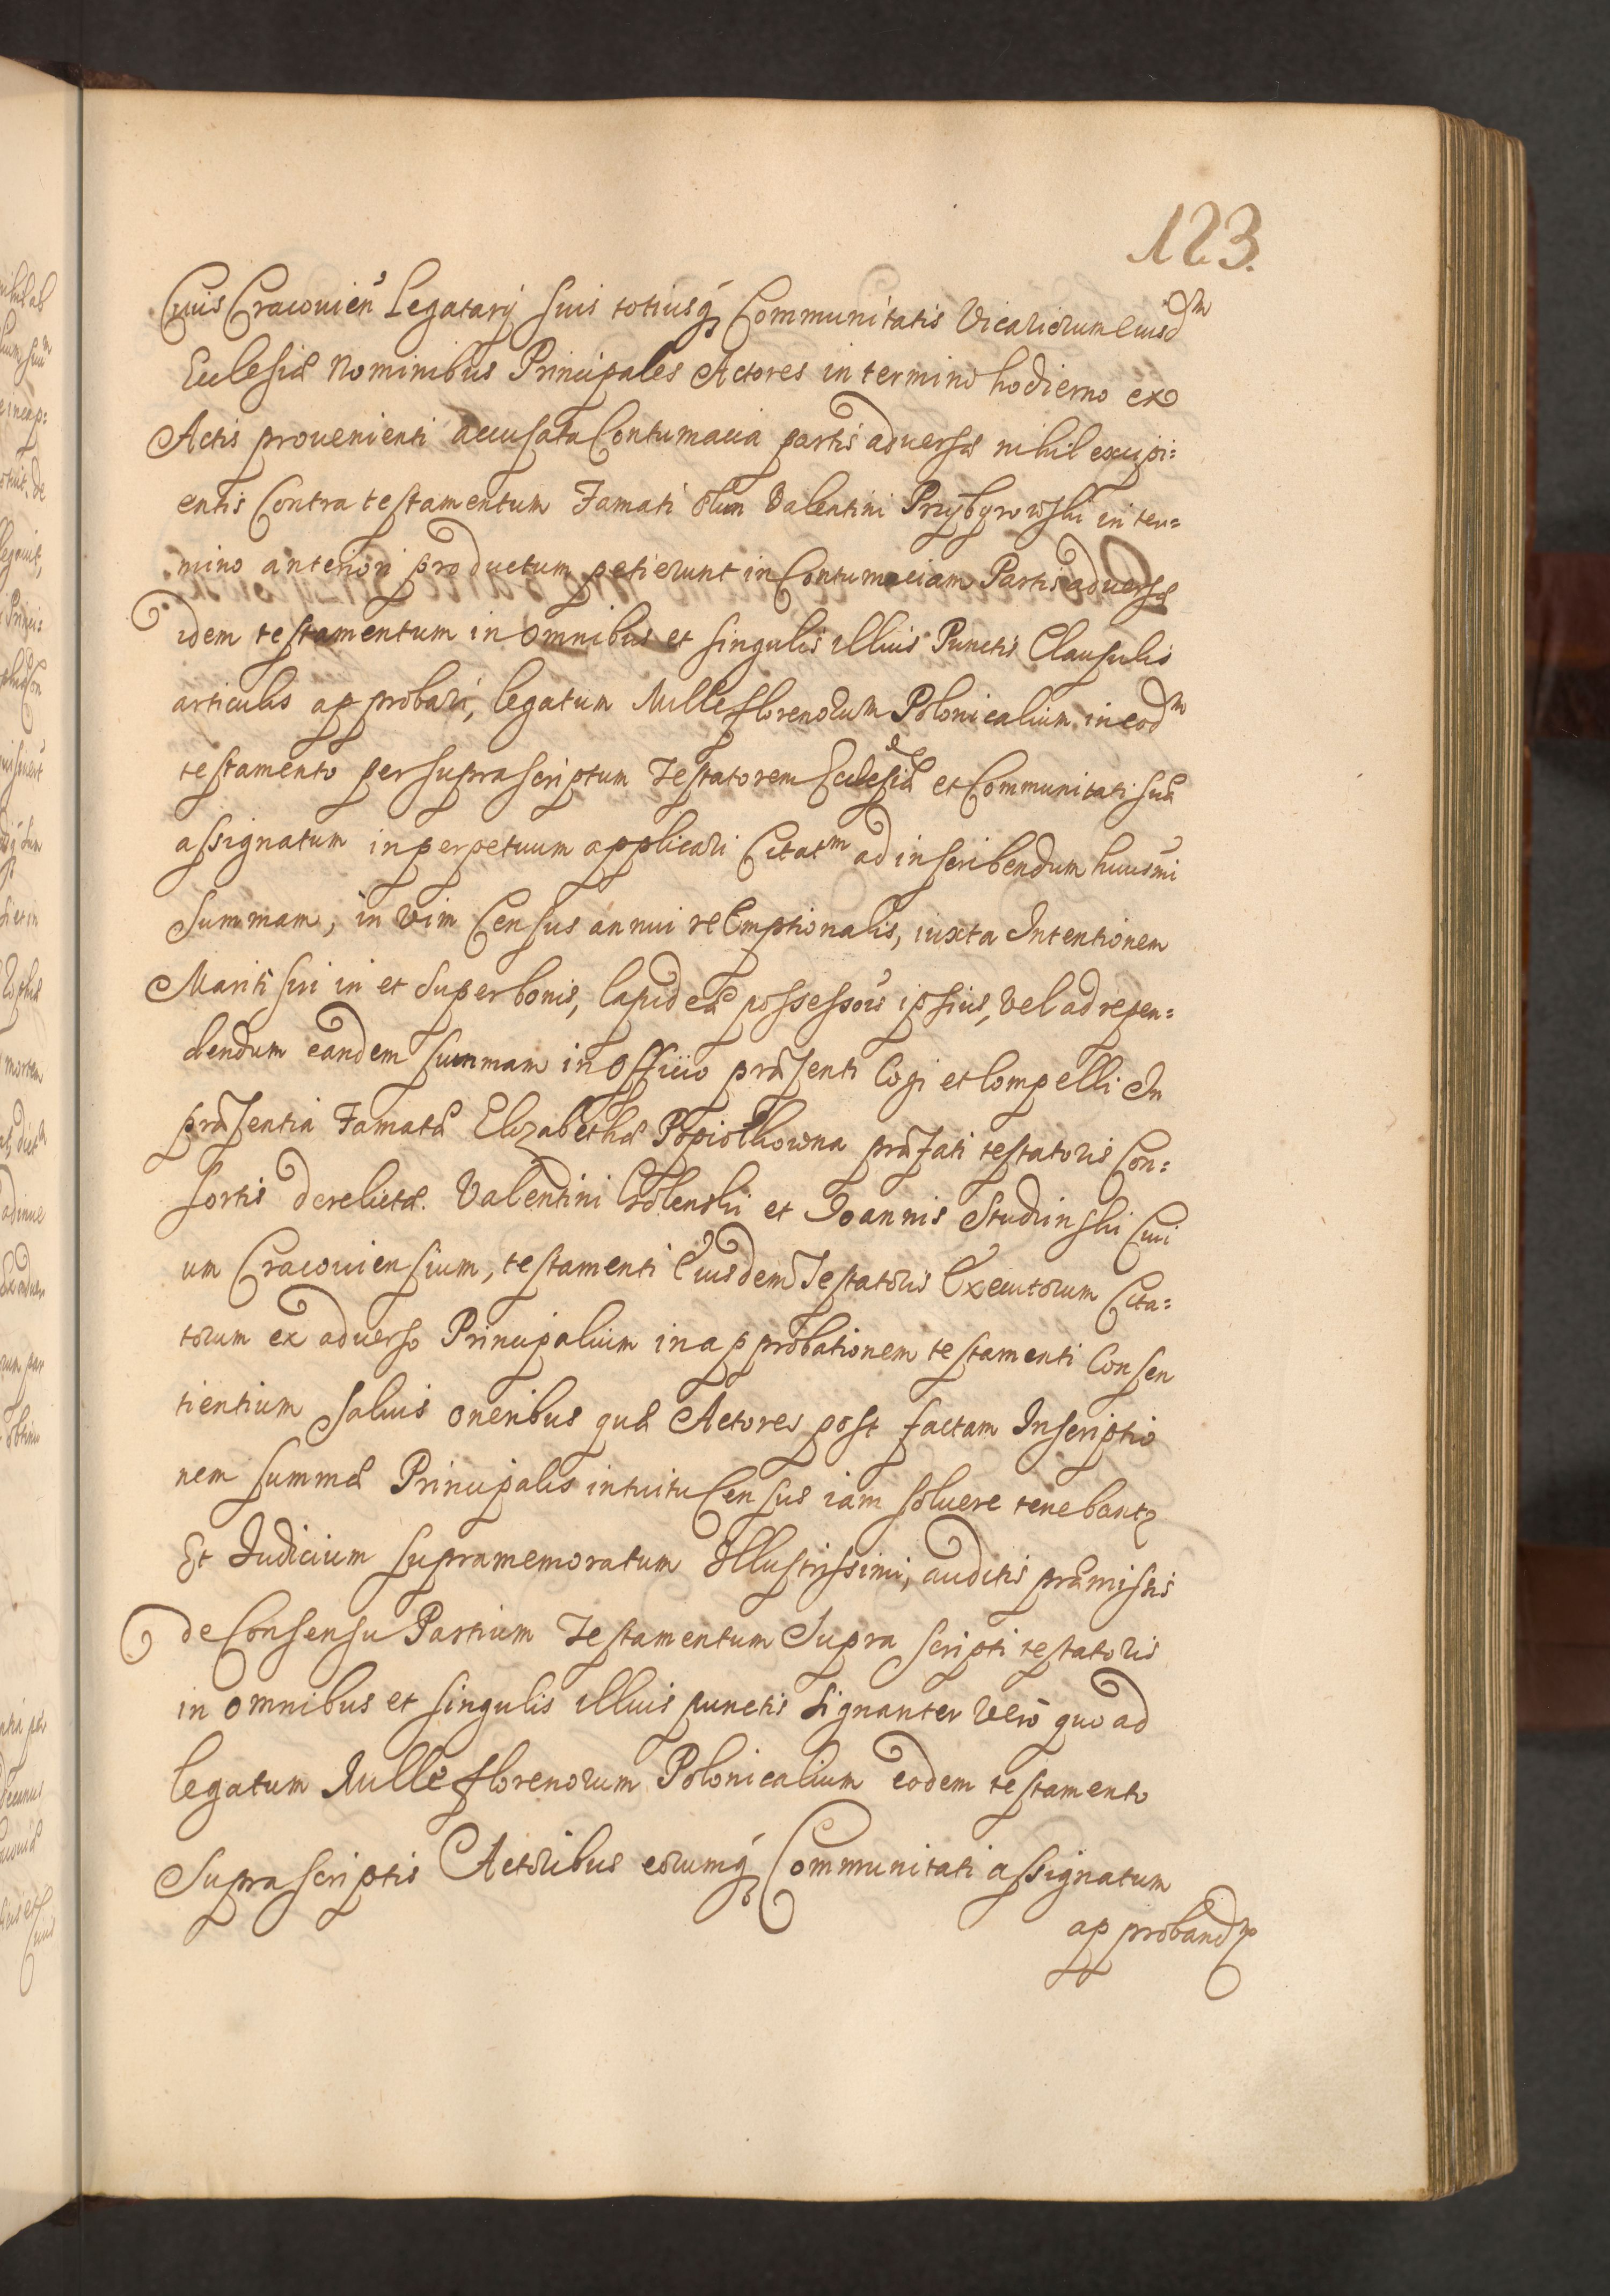 123.
Ciuis Cracouien̄ Legatarij suis totiusq; Communitatis Vicariorum eiusd͞m
Ecclesiæ Nominibus Principales Actores in termino hodierno ex
Actis prouenienti accusata Contumacia partis aduersæ nihil excipi=
entis Contra testamentum Famati olim Valentini Przybyrowski in ter=
mino anteriori productum petierunt in Contumaciam Partis aduersæ
idem testamentum in omnibus et singulis illius Punctis Clausulis
articulis approbari, legatum Mille florenorum Polonicalium in eod͞m
testamento per suprascriptum Testatorem Ecclesiæ et Communitati suæ
assignatum in perpetuum applicari Citatm ad inscribendum huiusmi
Summam, in Vim Census annui reEmptionalis, iuxta Intentionem
Mariti sui in et super bonis, lapideæ possessois ipsius, vel ad repen=
dendum eandem summam in Officio præsenti Cogi et Compelli In
præsentia Famatæ Elizabethæ Popiołkowna præfati testatoris Con=
sortis derelictæ. Valentini Golenski et Joannis Studzinski Ciui
um Cracouiensium, testamenti Eiusdem Testatoris Executorum Cita=
torum ex aduerso Principalium in approbationem testamenti Consen
tientium saluis oneribus quæ Actores post factam Inscriptio
nem summæ Principalis intuitu Census iam soluere tenebantr
Et Judicium supramemoratum Illustrissimi, auditis præmissis
de Consensu Partium Testamentum Supra scripti testatoris
in omnibus et singulis illius punctis signanter verò quo ad
legatum Mille florenorum Polonicalium eodem testamento
Supra scriptis Actoribus eorumq; Communitati assignatum
approband͞